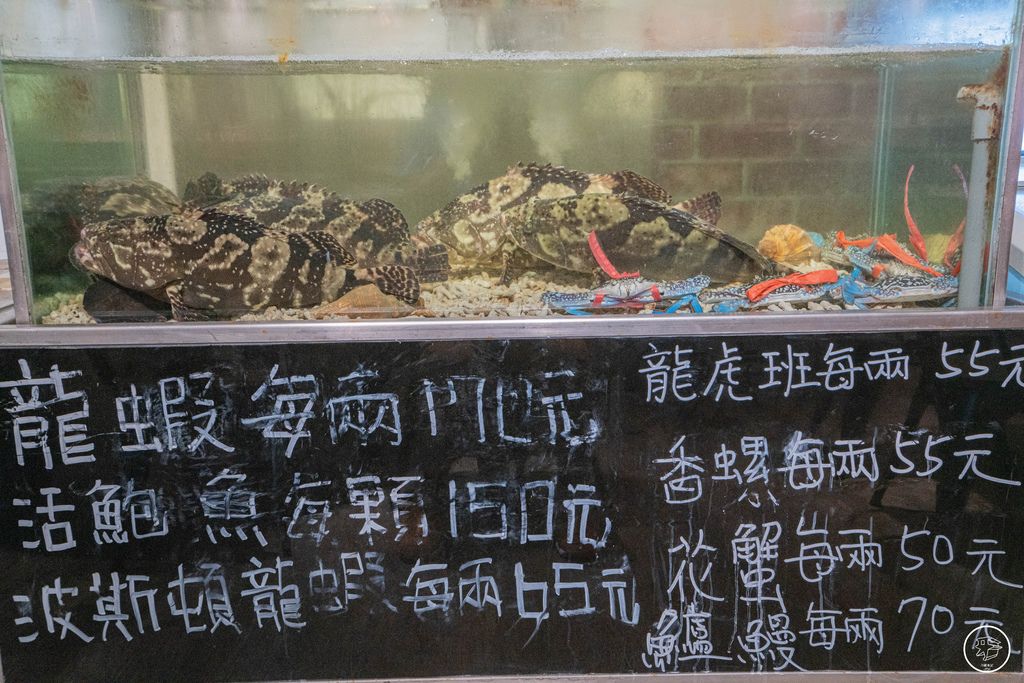 龍蝦每兩170元
活鮑魚每顆150元
波斯頓龍蝦每兩65元
龍虎班每兩55元
香螺每兩55元
花蟹每兩50元
鱸鰻每兩70元